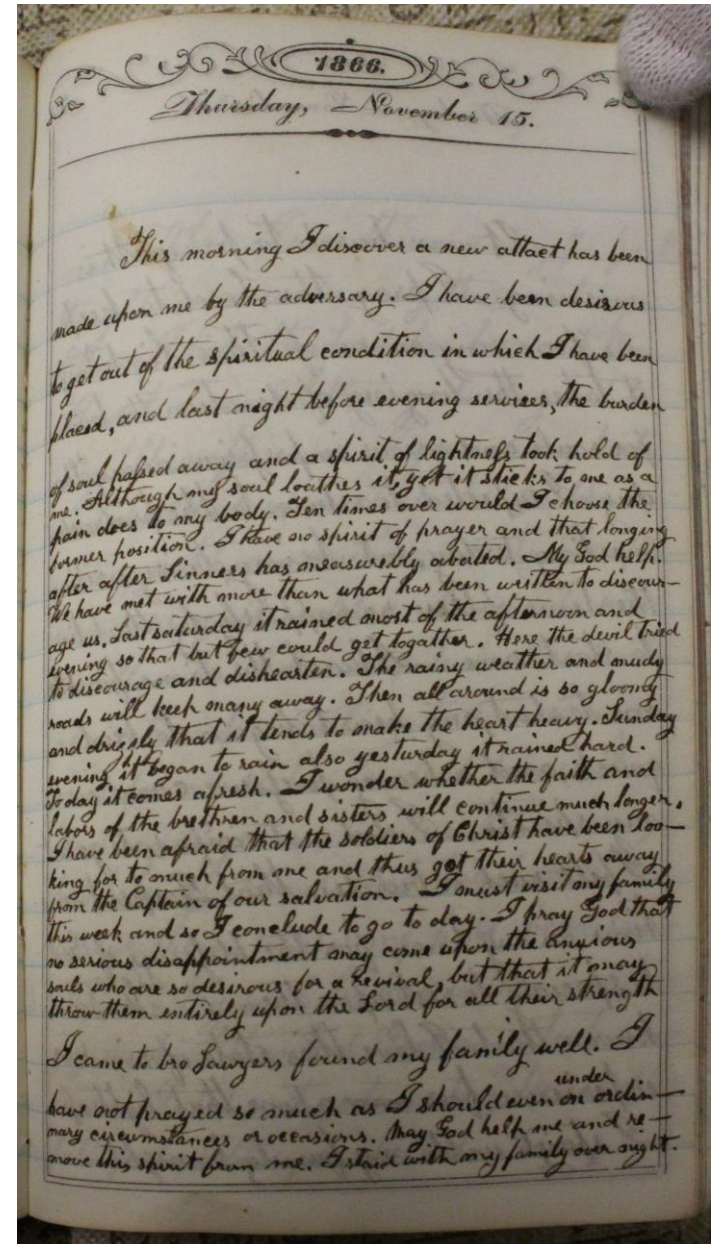 1866.
Thursday, November 15.
This morning I discover a new attact has been
made upon me by the adversary. I have been desirous
to get out of the spiritual condition in which I have been
placed, and last night before evening services, the burden
of soul passed away and a spirit of lightness took hold of
me. Although my soul loathes it, yet it sticks to me as a
pain does to my body. Ten times over would I choose the
former position. I have no spirit of prayer and that longing
after after Sinners has measurebly abated. My God help.
We have met with more than what has been written to discour-
age us. Last saturday it rained most of the afternoon and
evening so that but few could get togather. Here the devil tried
to discourage and dishearten. The rainy weather and mudy
roads will keep many away. Then all around is so gloomy
and drizsly that it tends to make the heart heavy. Sunday
evening it began to rain also yesturday it rained hard.
To day it comes afresh. I wonder whether the faith and
labors of the brethren and sisters will continue much longer.
I have been afraid that the soldiers of Christ have been loo-
king for to much from me and thus got their hearts away
from the Captain of our salvation. I must visit my family
this week and so I conclude to go to day. I pray God that
no serious disappointment may come upon the anxious
souls who are so desirous for a revival, but that it may
throw them entirely upon the Lord for all their strength
I came to bro Sawyers found my family well. I
have not prayed so much as I should even on under ordin-
nary circumstances or occasions. May God help me and re-
move this spirit from me. I staid with my family over night.